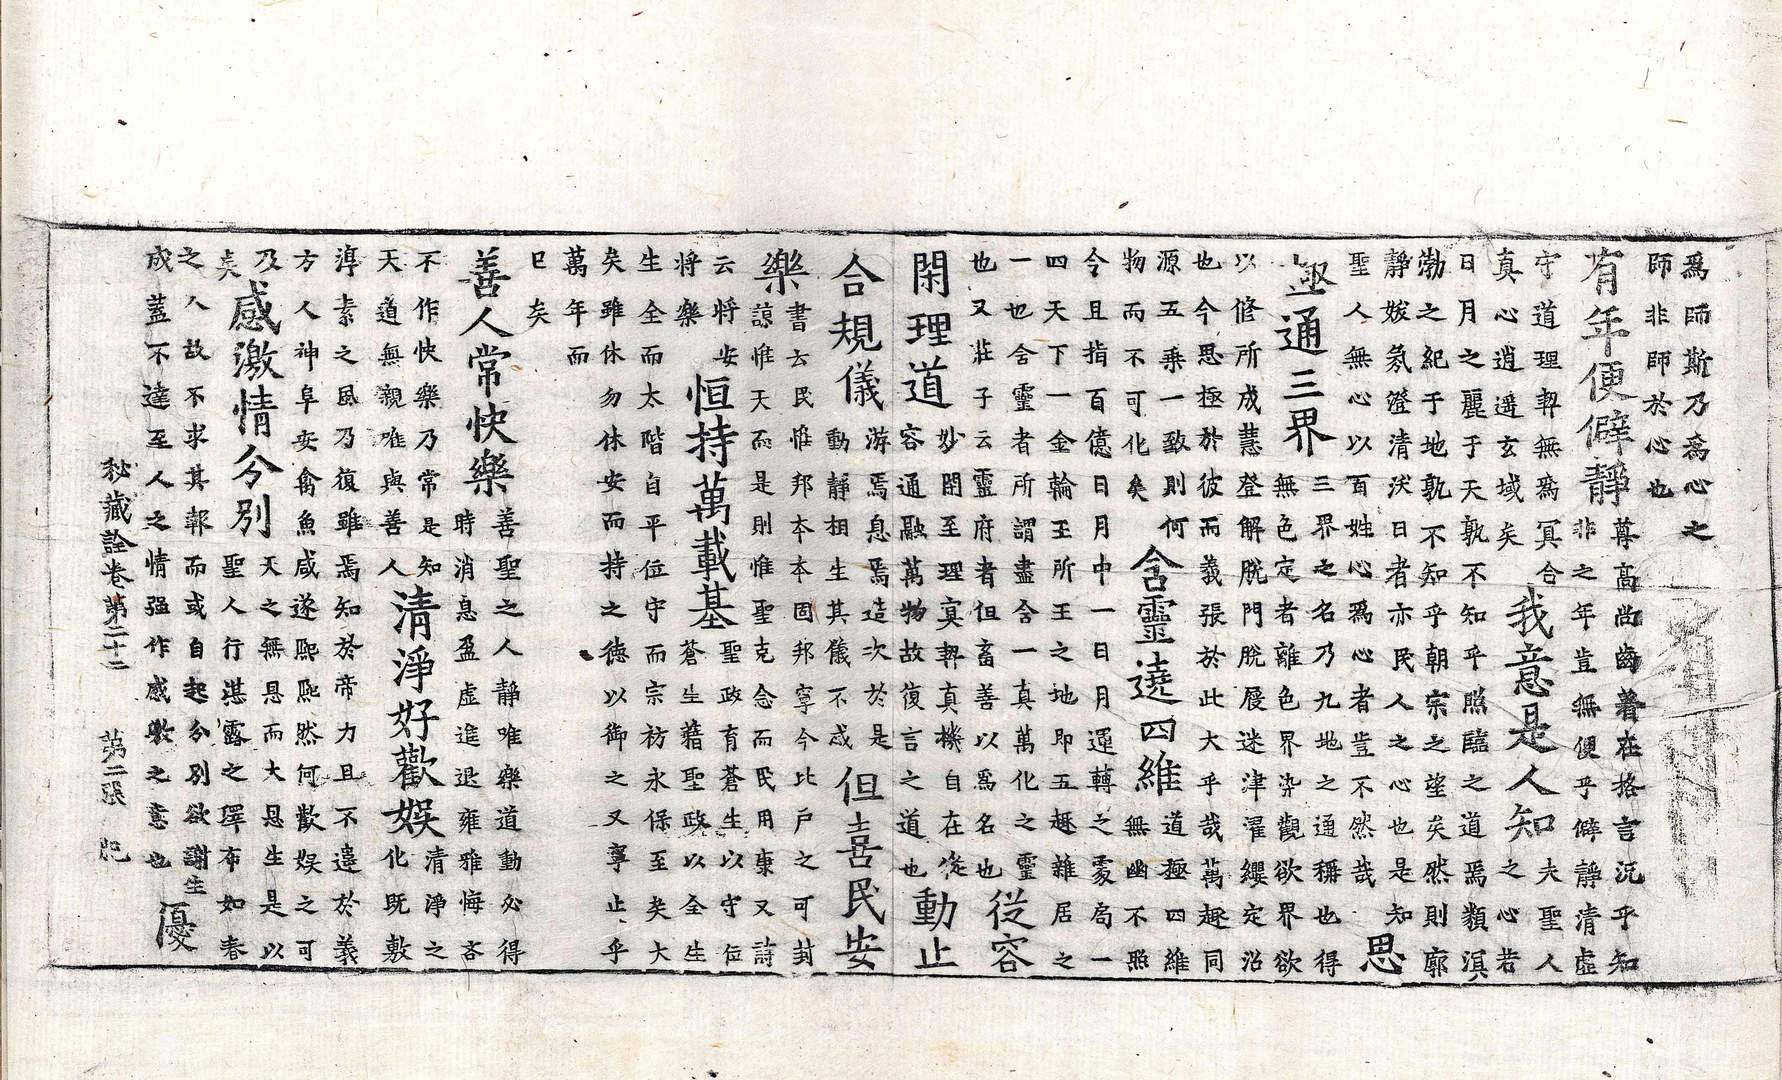 爲師斯乃爲心之
師非師於心也
有年便僻靜
尊高尚齒著在格言況乎知
非之年豈無便乎僻靜清虛
守道理契無爲冥合
真心逍遥玄域矣
我意是人知
夫聖人
之心若
日月之麗于天孰不知乎照臨之道焉類溟
渤之紀于地孰不知乎朝宗之望矣然則廓
靜氛澄清日者亦民人之心也是知
聖人無心以百姓心爲心者豈不然哉
思
極通三界
三界之名乃九地之通稱也得
無色定者離色界染觀欲界欲
以修所成慧登解脫門脫屣迷津濯纓定沼
也今思極於彼而義張於此大乎哉萬趣同
源五乘一致則何
物而不可化矣
含靈遶四維
道極四維
無幽不照
今且指百億日月中一日月運轉之處局一
四天下一金輪王所王之地即五趣雜居之
一也含靈者所謂盡含一真萬化之靈
也又莊子云靈府者但畜善以爲名也
從容
閑理道
妙閑至理冥契真機自在從
容通融萬物故復言之道也
動止
合規儀
游焉息焉造次於是
動靜相生其儀不忒
但喜民安
樂
書云民惟邦本本固邦寧今比戶之可封
諒惟天而是則惟聖克念而民用康又詩
云將安
將樂
恒持萬載基
聖政育蒼生以守位
蒼生藉聖政以全生
生全而太階自平位守而宗祊永保至矣大
矣雖休勿休安而持之德以御之又寧止乎
萬年而
已矣
善人常快樂
善聖之人靜唯樂道動必得
時消息盈虛進退雍雅悔吝
不作快樂乃常是知
天道無親唯與善人
清淨好歡娛
清淨之
化既敷
淳素之風乃復雖焉知於帝力且不違於義
方人神阜安禽魚咸遂熙熙然何歡娛之可
及
矣
感激情分別
天之無恩而大恩生是以
聖人行湛露之澤布如春
之人故不求其報而或自起分別欲謝生
成蓋不達至人之情强作感歎之意也
優
秘藏詮卷第二十二 第二張